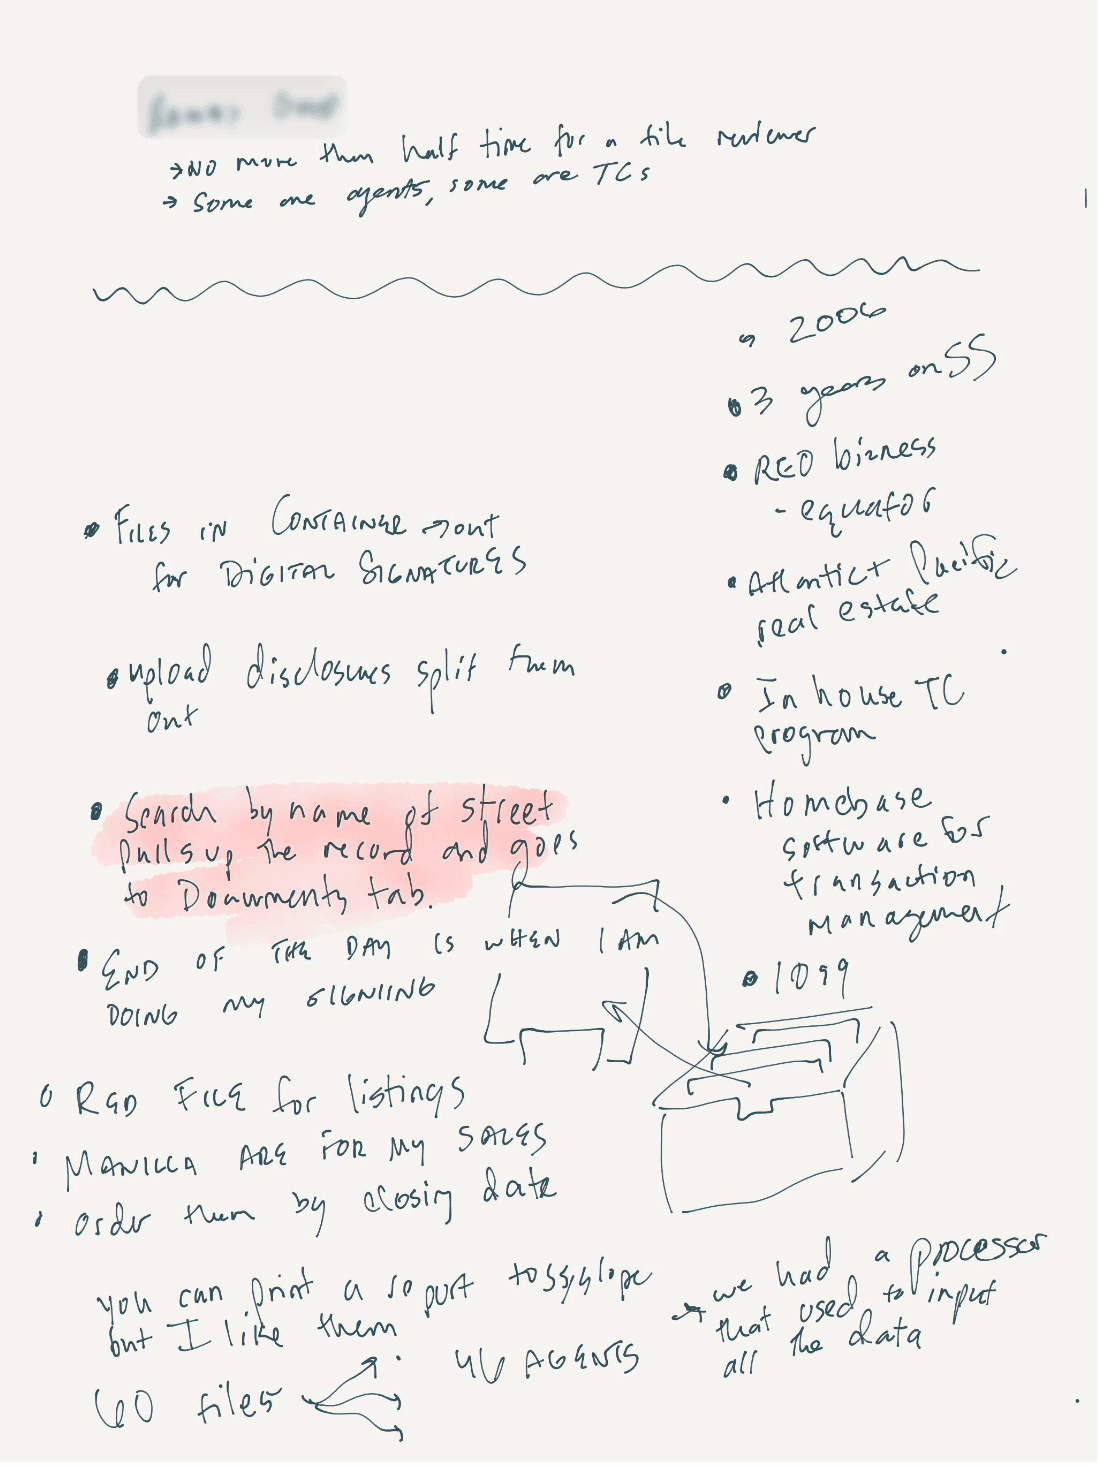 → NO more then half time for a file reviewer
→ Some are agents, some are TCs
• 2006
• 3 years on SS
• REO bizness
- equator
• Atlantic + Pacific
real estate
• In house TC
program
• Homebase
software for
transaction
management
• 1099
• FILES IN CONTAINER → out
for DIGITAL SIGNATURES
• upload disclosures split them
out
• Search by name of street
pulls up the record and goes
to Documents tab.
• END OF THE DAY IS WHEN I AM
DOING MY SIGNIING
• RED FILE for listings
• MANILLA ARE FOR MY SALES
• order them by closing date
you can print a report
but I like them
60 files
46 AGENTS
→ we had a processor
that used to input
all the data